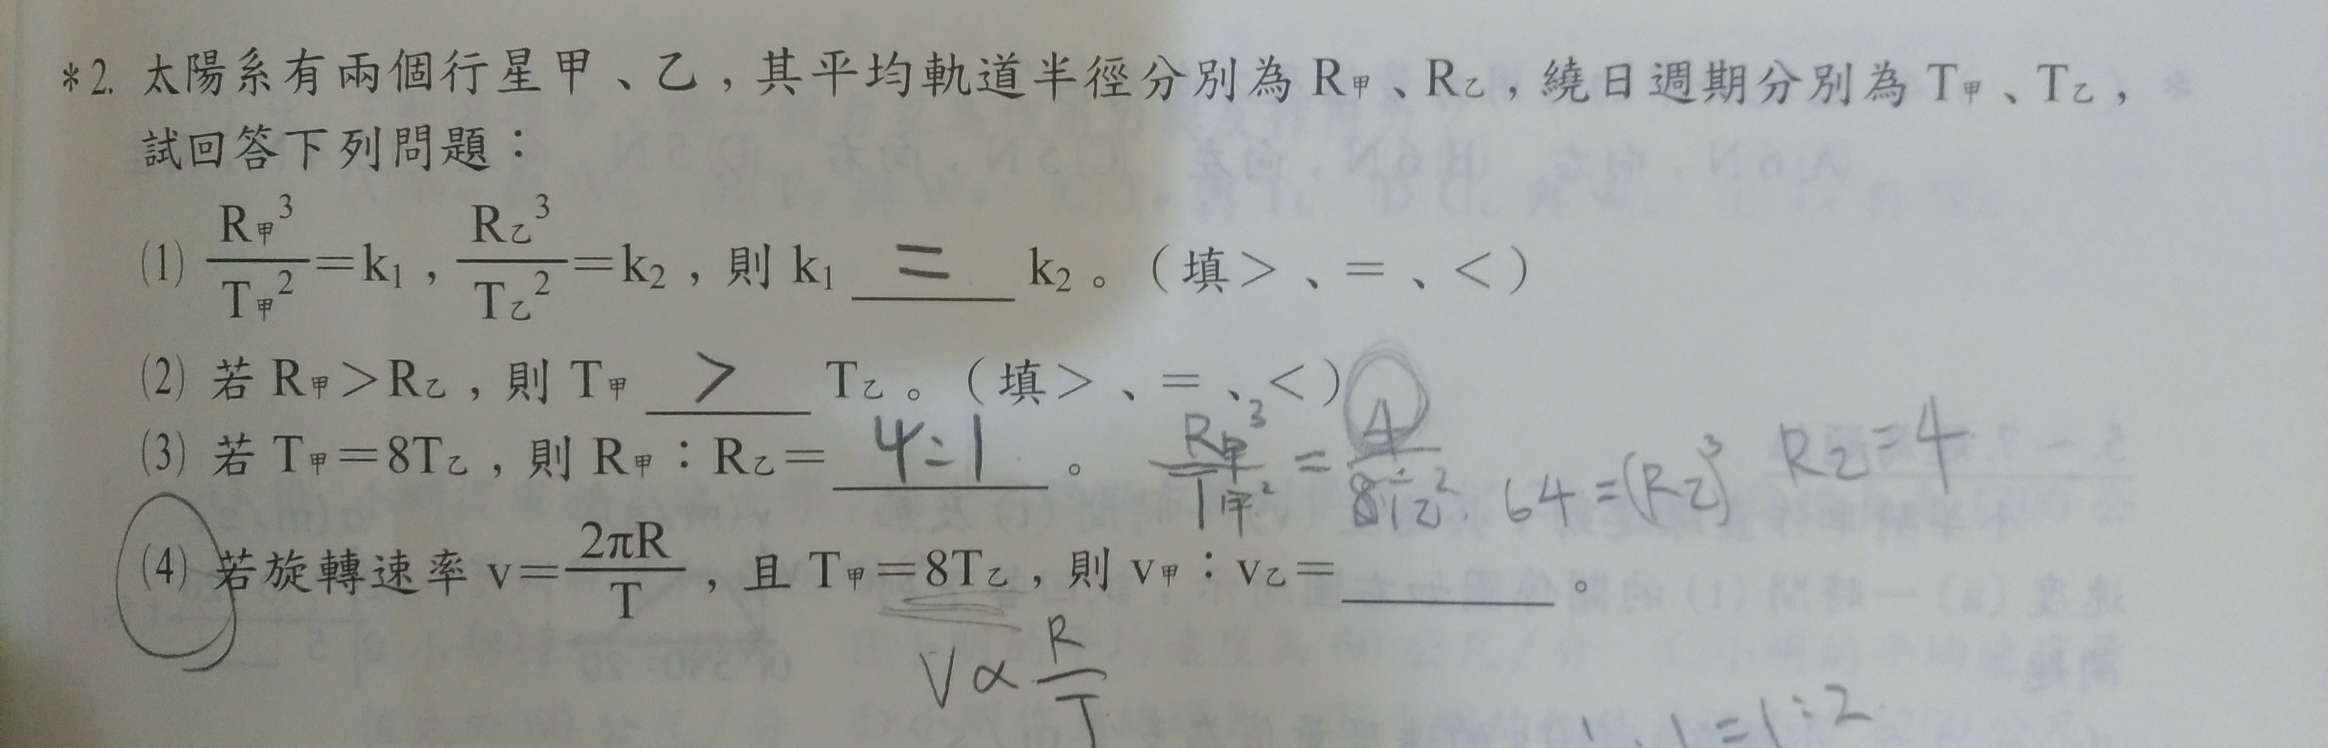 *2. 太陽系有兩個行星甲、乙，其平均軌道半徑分別為 R甲、R乙，繞日週期分別為 T甲、T乙，
試回答下列問題：
(1) R甲³/T甲²=k₁，R乙³/T乙²=k₂，則 k₁ = k₂。（填＞、＝、＜）
(2) 若 R甲＞R乙，則 T甲 > T乙。（填＞、＝、＜）
(3) 若 T甲=8T乙，則 R甲：R乙= 4:1 。
R甲³/T甲² = 4/8T乙² 64=(R乙)³ R乙=4
(4) 若旋轉速率 v=2πR/T，且 T甲=8T乙，則 v甲：v乙=______。
V∝R/T
1=1:2